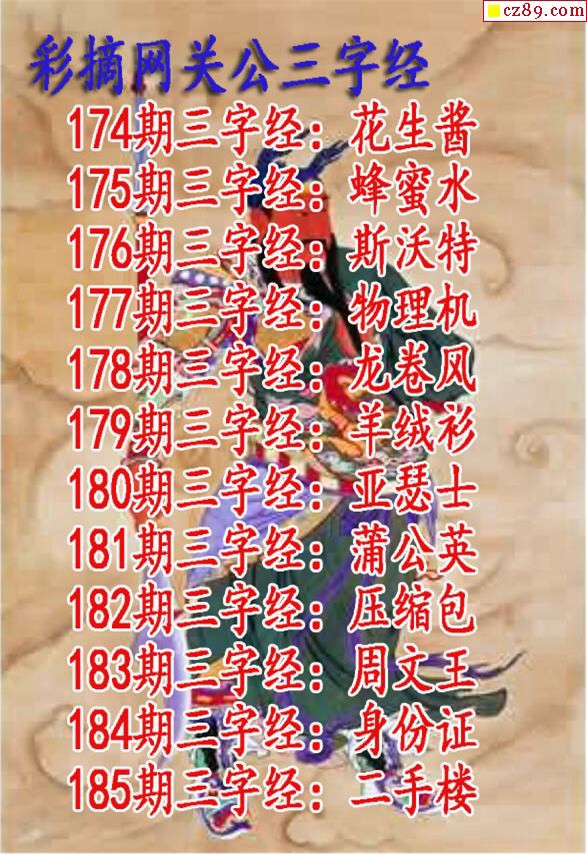 cz89.com
彩摘网关公三字经
174期三字经：花生酱
175期三字经：蜂蜜水
176期三字经：斯沃特
177期三字经：物理机
178期三字经：龙卷风
179期三字经：羊绒衫
180期三字经：亚瑟士
181期三字经：蒲公英
182期三字经：压缩包
183期三字经：周文王
184期三字经：身份证
185期三字经：二手楼